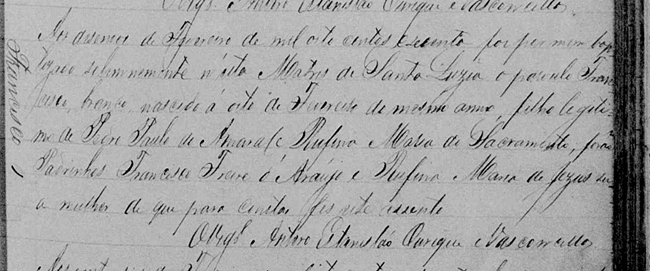 O Vigº Antero Estanislao Ourique e Vasconcellos
de Fevereiro de mil oito centos e secenta, foi por mim bap
tizado solemnemente n'esta Matriz de Santa Luzia o parvulo Fran
cisco, branco, nascido á oito de Fevereiro do mesmo anno, filho legiti
mo de Pedro Paulo do Amaral e Rufina Maria do Sacramento, forão
Padrinhos Francisco Freire d'Araújo e Rufina Maria de Jezus su
a mulher de que para constar fis este assento
O Vigº Antero Estanislao Ourique e Vasconcellos
Francisco